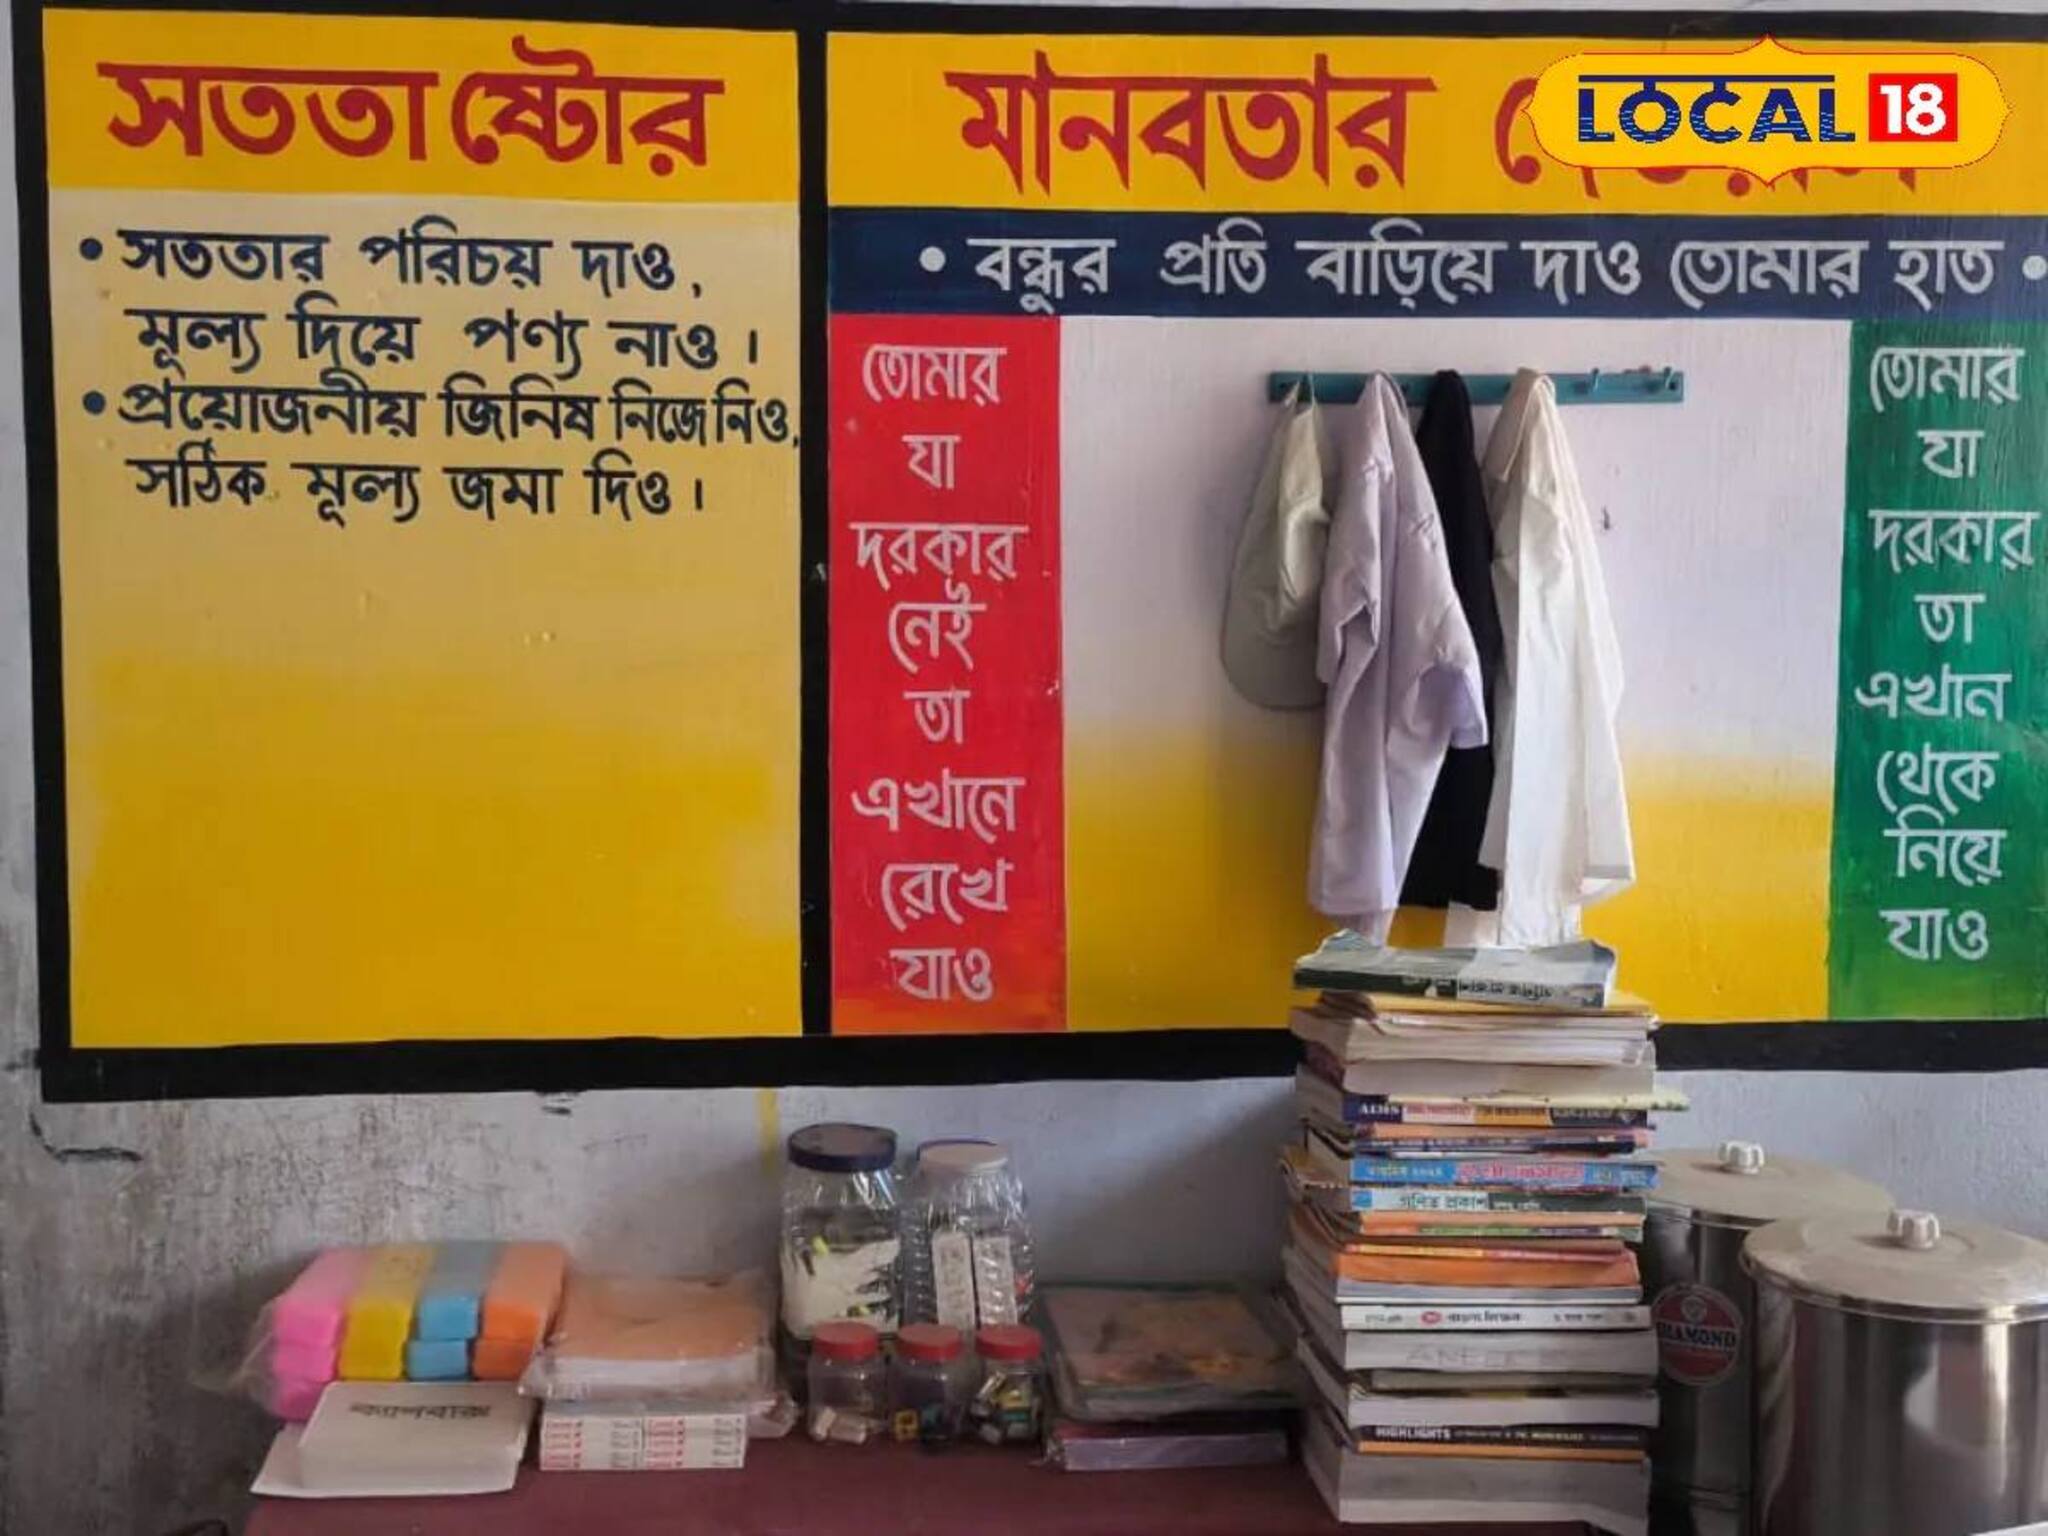 সততা ষ্টোর
• সততার পরিচয় দাও,
মূল্য দিয়ে পণ্য নাও।
• প্রয়োজনীয় জিনিষ নিজে নিও,
সঠিক মূল্য জমা দিও।
মানবতার
LOCAL 18
• বন্ধুর প্রতি বাড়িয়ে দাও তোমার হাত •
তোমার
যা
দরকার
নেই
তা
এখানে
রেখে
যাও
তোমার
যা
দরকার
তা
এখান
থেকে
নিয়ে
যাও
ক্যাশবাক্স
AIMS
গণিত প্রকাশ
HIGHLIGHTS
DIAMOND